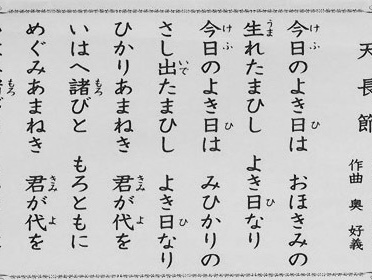 天長節
作曲 奥 好義
今日のよき日は おほきみの
生れたまひし よき日なり
今日のよき日は みひかりの
さし出たまひし よき日なり
ひかりあまねき 君が代を
いはへ諸びと もろともに
めぐみあまねき 君が代を